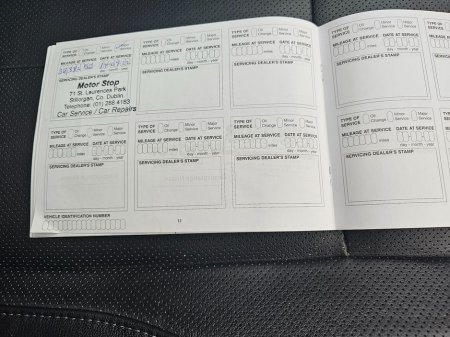 TYPE OF SERVICE Oil Change Minor Service Major Service
MILEAGE AT SERVICE DATE AT SERVICE
miles day - month - year
SERVICING DEALER'S STAMP
Motor Stop
71 St. Laurences Park
Stillorgan, Co. Dublin.
Telephone: (01) 288 4183
Car Service / Car Repairs
TYPE OF SERVICE Oil Change Minor Service Major Service
MILEAGE AT SERVICE DATE AT SERVICE
miles day - month - year
SERVICING DEALER'S STAMP
TYPE OF SERVICE Oil Change Minor Service Major Service
MILEAGE AT SERVICE DATE AT SERVICE
miles day - month - year
SERVICING DEALER'S STAMP
TYPE OF SERVICE Oil Change Minor Service Major Service
MILEAGE AT SERVICE DATE AT SERVICE
miles day - month - year
SERVICING DEALER'S STAMP
TYPE OF SERVICE
MILEAGE AT SERVICE
SERVICING DEALER'S STAMP
TYPE OF SERVICE Oil Change Minor Service Major Service
MILEAGE AT SERVICE DATE AT SERVICE
miles day - month - year
SERVICING DEALER'S STAMP
TYPE OF SERVICE Oil Change Minor Service Major Service
MILEAGE AT SERVICE DATE AT SERVICE
miles day - month - year
SERVICING DEALER'S STAMP
TYPE OF SERVICE Oil Change Minor Service Major Service
MILEAGE AT SERVICE DATE AT SERVICE
miles day - month - year
SERVICING DEALER'S STAMP
TYPE OF SERVICE Oil Change Minor Service Major Service
MILEAGE AT SERVICE DATE AT SERVICE
miles day - month - year
SERVICING DEALER'S STAMP
TYPE OF SERVICE
MILEAGE AT SERVICE
SERVICING DEALER'S
VEHICLE IDENTIFICATION NUMBER
17